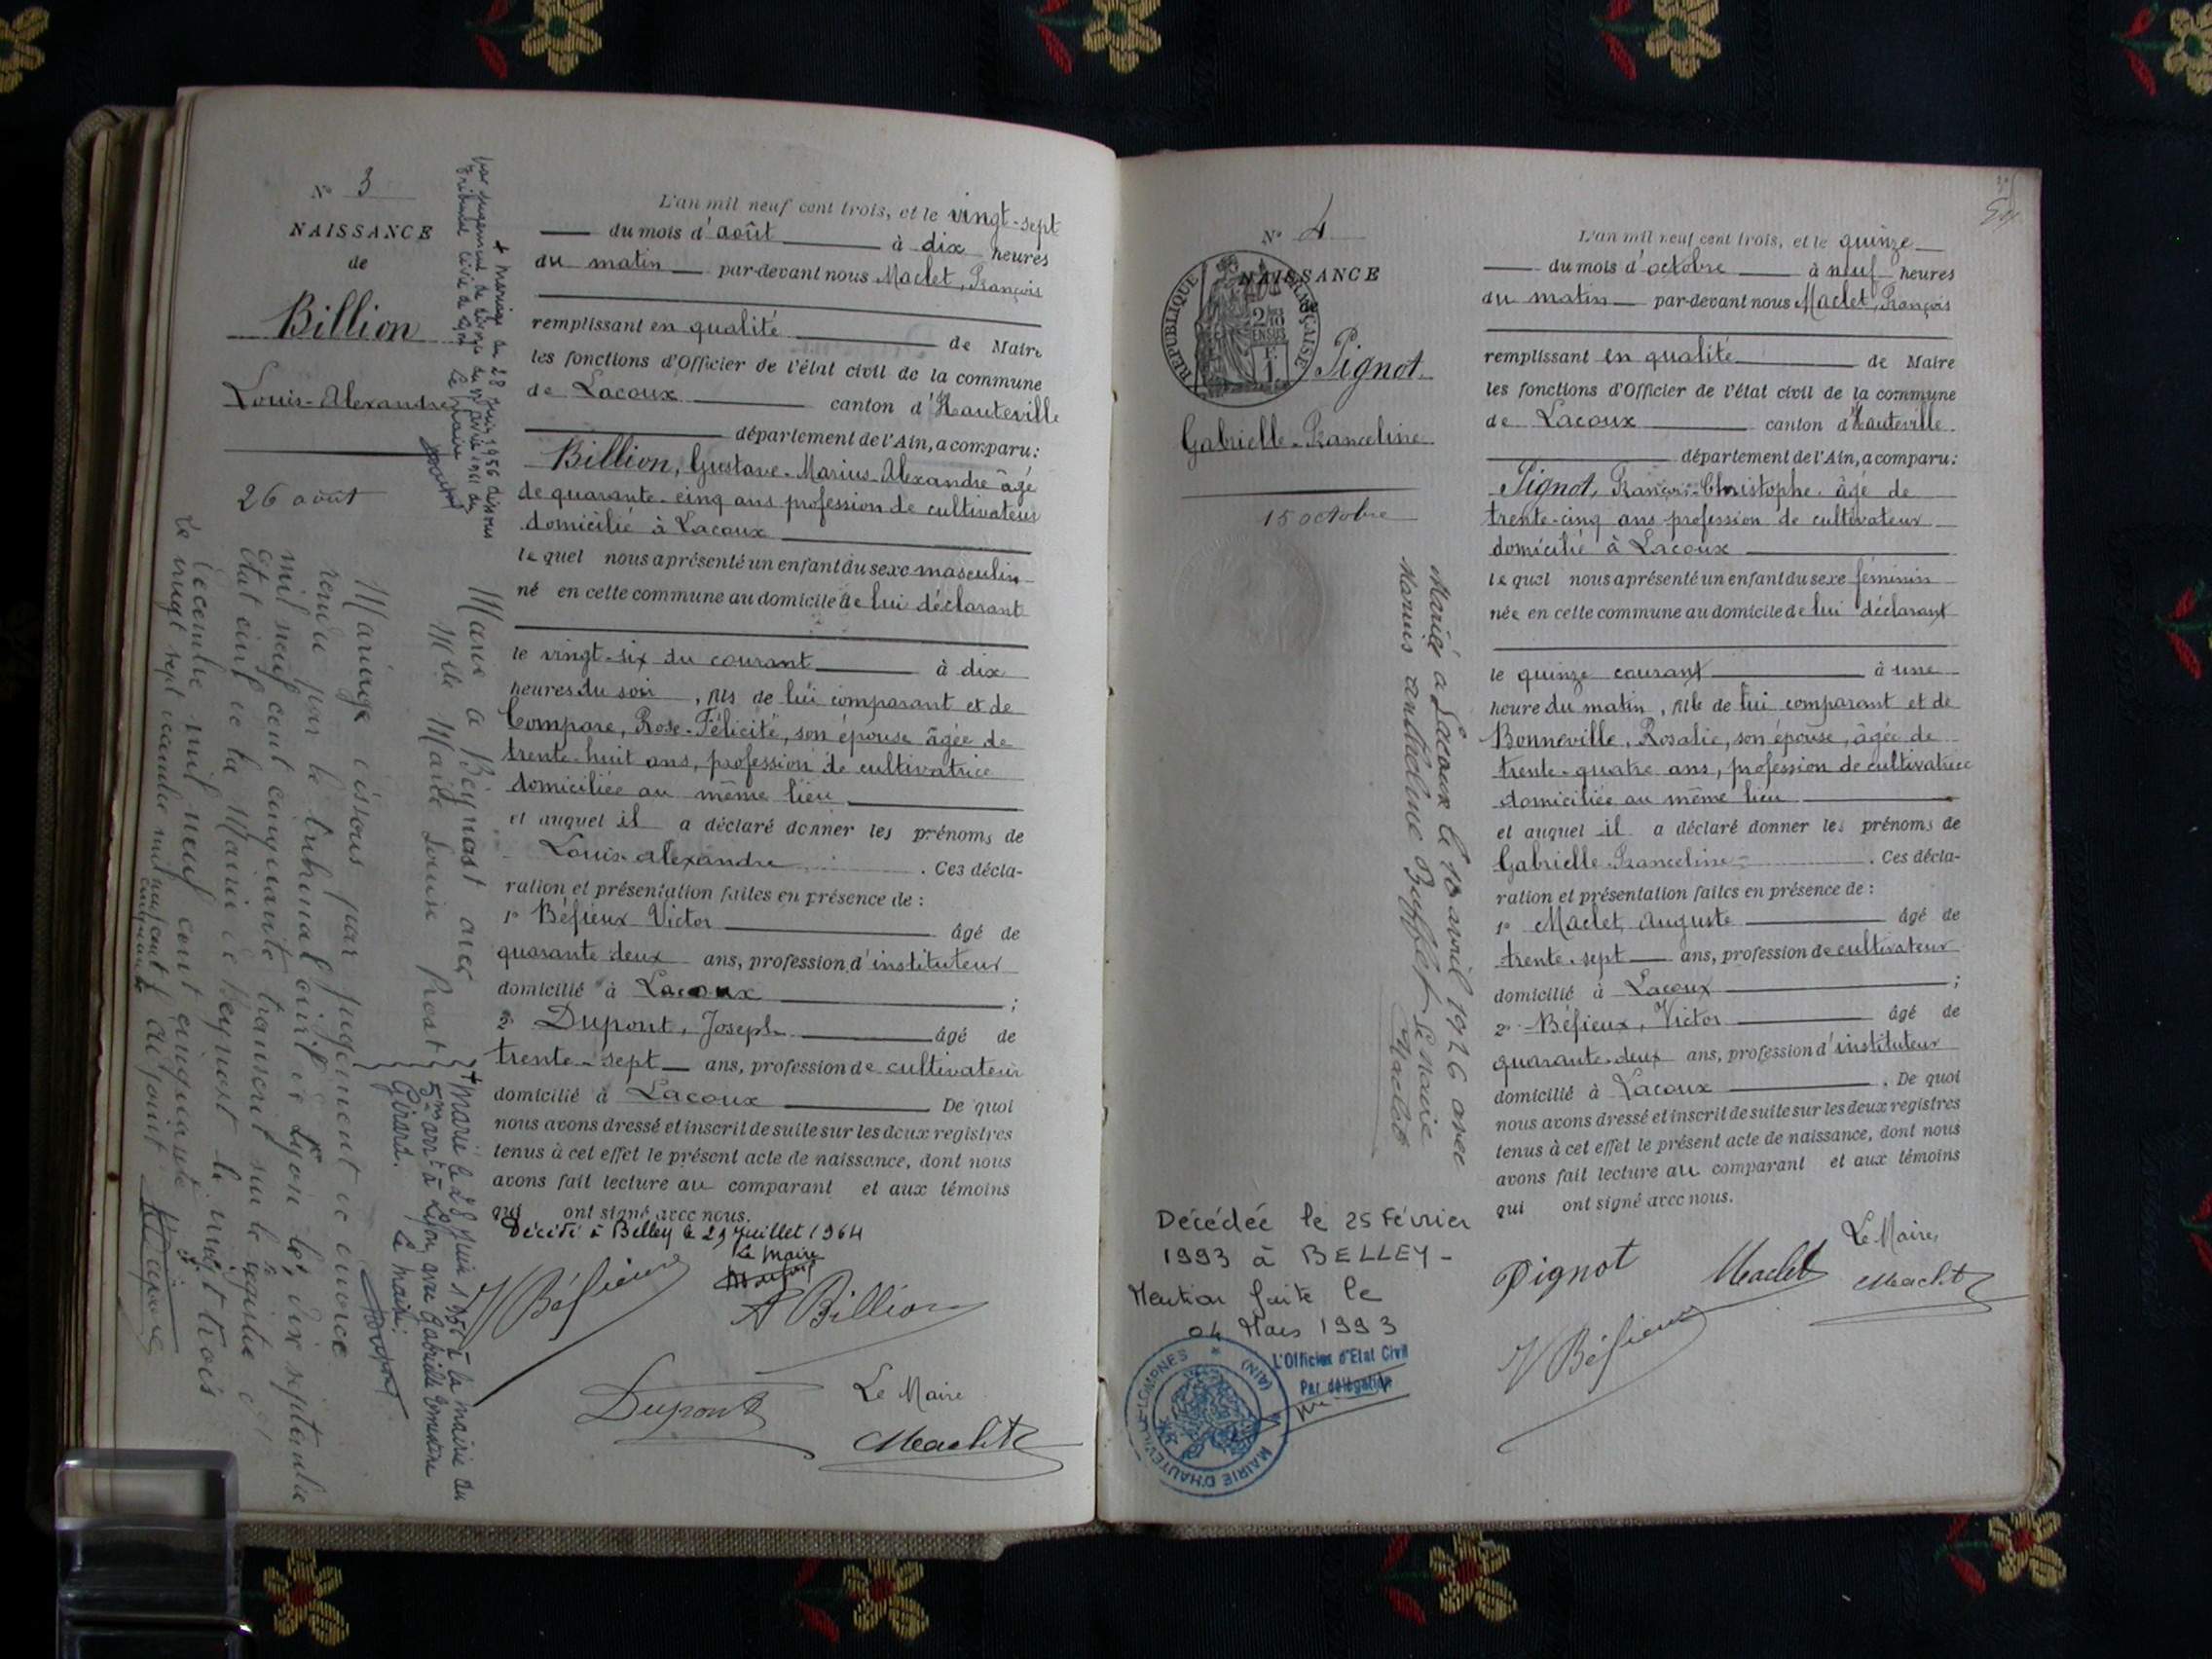 N° 3
NAISSANCE
de
Billion
Louis-Alexandre
26 août
L'an mil neuf cent trois, et le vingt-sept
du mois d'août à dix heures
du matin par-devant nous Maclet, François
remplissant en qualité de Maire
les fonctions d'Officier de l'état civil de la commune
de Lacoux canton d'Hauteville
département de l'Ain, a comparu:
Billion, Gustave-Marius-Alexandre âgé
de quarante-cinq ans profession de cultivateur
domicilié à Lacoux
lequel nous a présenté un enfant du sexe masculin
né en cette commune au domicile de lui déclarant
le vingt-six du courant à dix
heures du soir, fils de lui comparant et de
Compare, Rose-Félicité, son épouse âgée de
trente-huit ans, profession de cultivatrice
domiciliée au même lieu
et auquel il a déclaré donner les prénoms de
Louis-Alexandre. Ces décla-
ration et présentation faites en présence de :
1° Béfieux Victor âgé de
quarante deux ans, profession d'instituteur
domicilié à Lacoux ;
2° Dupont, Joseph âgé de
trente-sept ans, profession de cultivateur
domicilié à Lacoux De quoi
nous avons dressé et inscrit de suite sur les deux registres
tenus à cet effet le présent acte de naissance, dont nous
avons fait lecture au comparant et aux témoins
qui ont signé avec nous.
Décédé à Belley le 29 juillet 1964
Le Maire
V Béfieux
A Billion
Dupont
Le Maire
Maclet
+ mariage du 28 juin 1956 dissous
par jugement de divorce du
Tribunal Civil de Lyon Le maire
Marié à Béynost avec
Mlle Marie Louise Prost
Mariage dissous par jugement de divorce
rendu par le tribunal civil de Lyon le dix septembre
mil neuf cent cinquante transcrit sur le registre
état civil de la Mairie de Beynost le vingt trois
décembre mil neuf cent cinquante
le vingt sept décembre mil neuf cent
cinquante
+ Marié le 28 juin 1956 à la mairie du
5me arrt à Lyon, avec Gabrielle
Girard. Le maire:
N° 4
NAISSANCE
de
RÉPUBLIQUE FRANÇAISE
Pignot
Gabrielle-Franceline
15 octobre
Mariée à Lacoux le 10 avril 1926 avec
Marius Anthelme Buffet Le Maire
Maclet
Décédée le 25 Février
1993 à BELLEY-
Mention faite le
04 Mars 1993
L'Officier d'Etat Civil
Par délégation
MAIRIE D'HAUTEVILLE-LOMPNES (AIN)
L'an mil neuf cent trois, et le quinze
du mois d'octobre à neuf heures
du matin par-devant nous Maclet, François
remplissant en qualité de Maire
les fonctions d'Officier de l'état civil de la commune
de Lacoux canton d'Hauteville
département de l'Ain, a comparu:
Pignot, François-Christophe âgé de
trente-cinq ans profession de cultivateur
domicilié à Lacoux
lequel nous a présenté un enfant du sexe féminin
née en cette commune au domicile de lui déclarant
le quinze courant à une
heure du matin, fille de lui comparant et de
Bonneville, Rosalie, son épouse, âgée de
trente-quatre ans, profession de cultivatrice
domiciliée au même lieu
et auquel il a déclaré donner les prénoms de
Gabrielle-Franceline. Ces décla-
ration et présentation faites en présence de :
1° Maclet, Auguste âgé de
trente-sept ans, profession de cultivateur
domicilié à Lacoux ;
2° Béfieux, Victor âgé de
quarante-deux ans, profession d'instituteur
domicilié à Lacoux. De quoi
nous avons dressé et inscrit de suite sur les deux registres
tenus à cet effet le présent acte de naissance, dont nous
avons fait lecture au comparant et aux témoins
qui ont signé avec nous.
Le Maire,
Pignot Maclet Maclet
V Béfieux